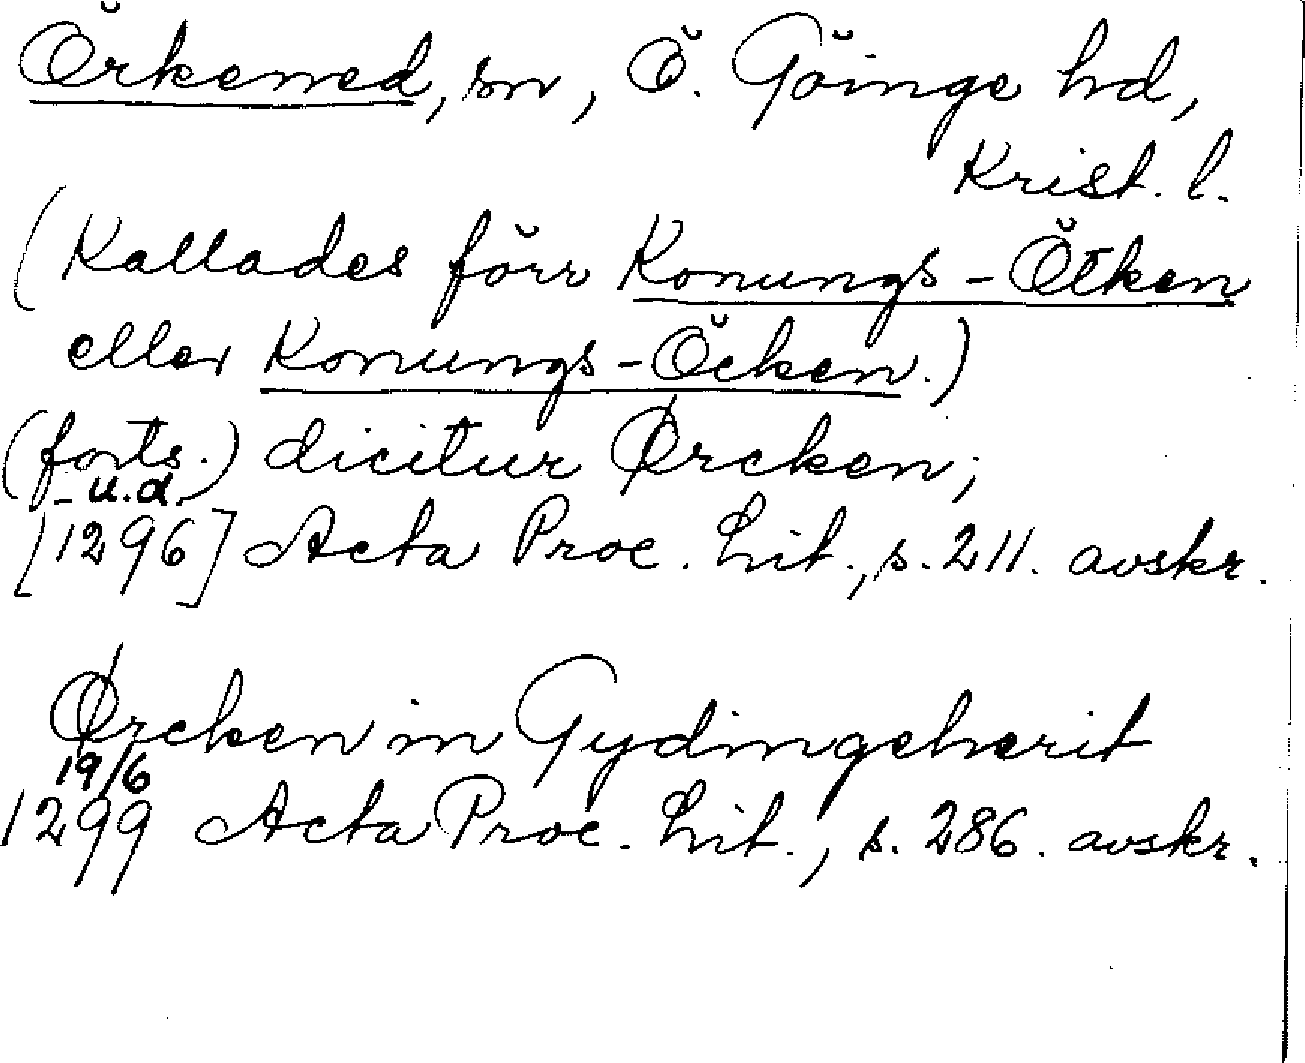 Örkened, sn, Ö. Göinge hd,
Krist. l.
(Kallades förr Konungs-Ötken
eller Konungs-Öcken.)
(forts.) dicitur Ørcken;
- u.d. -
[1296] Acta Proc. Lit., s. 211. avskr.
Ørcken in Gydingeherit
19/6
1299 Acta Proc. Lit., s. 286. avskr.